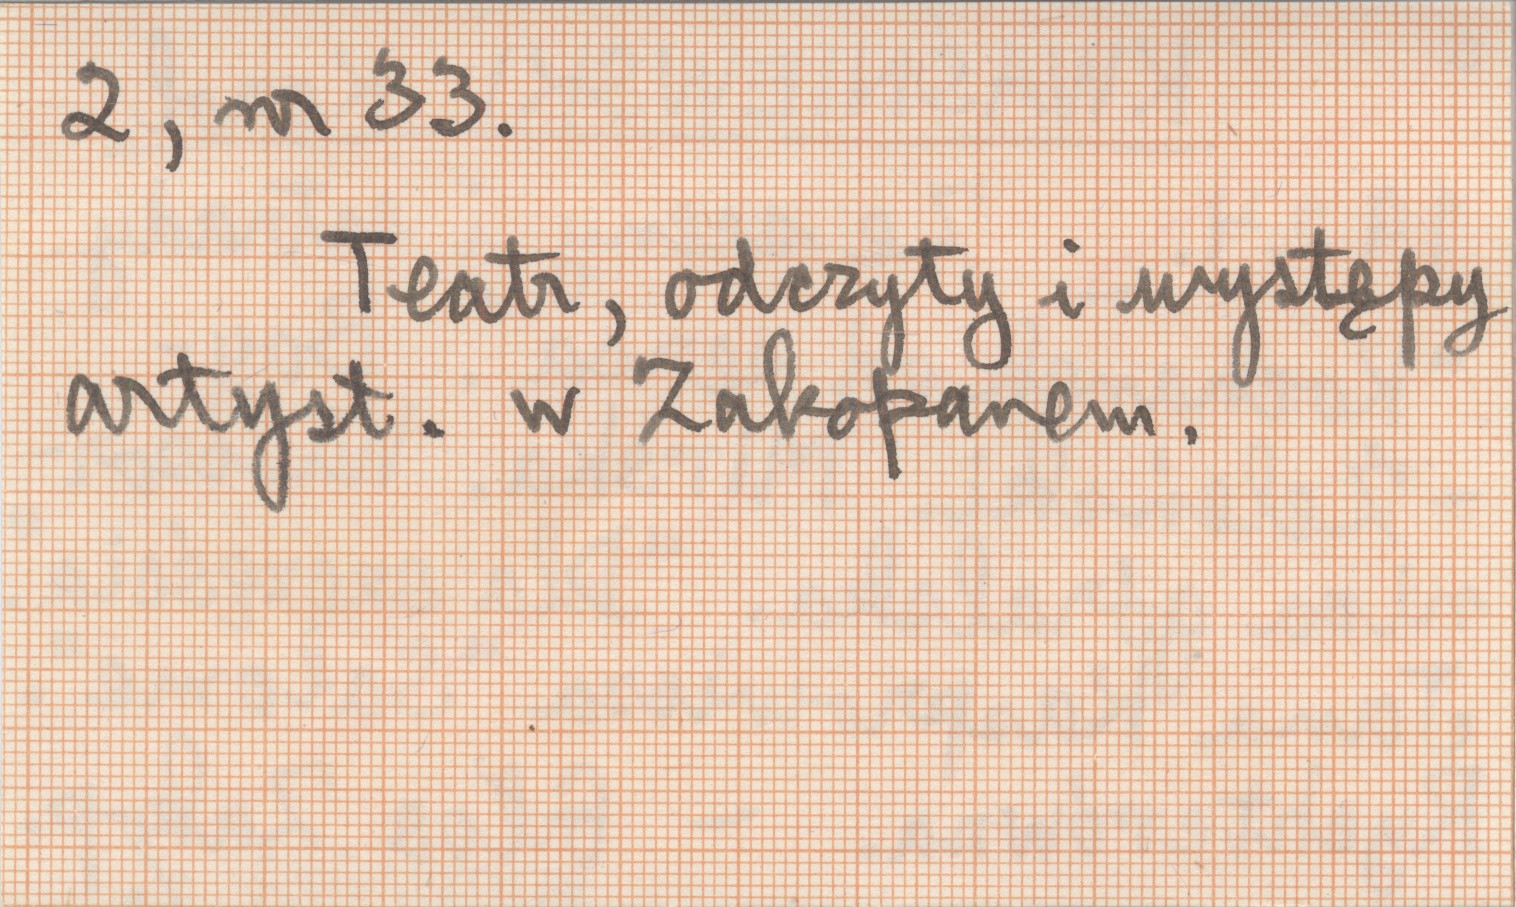 2, nr 33.
Teatr, odczyty i występy
artyst. w Zakopanem.